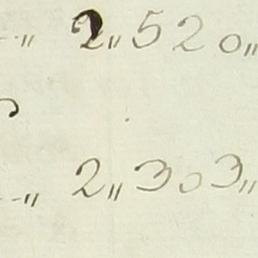 - „ 2„520„
- „ 2„303„